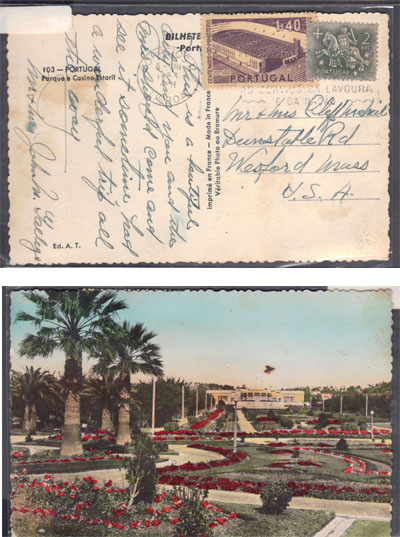 BILHETE
-Port
103 - PORTUGAL
Parque e Casino Estoril
This is a beautiful
country you and the
should come and
see it sometime had
a wonderful trip all
the way
Mr & Mrs John
Ed. A. T.
Imprimé en France - Made in France
Véritable Photo au Bromure
1$40
PORTUGAL
2
LAVOURA
Mr & Mrs
Dunstable Rd
Westford Mass
U.S.A.